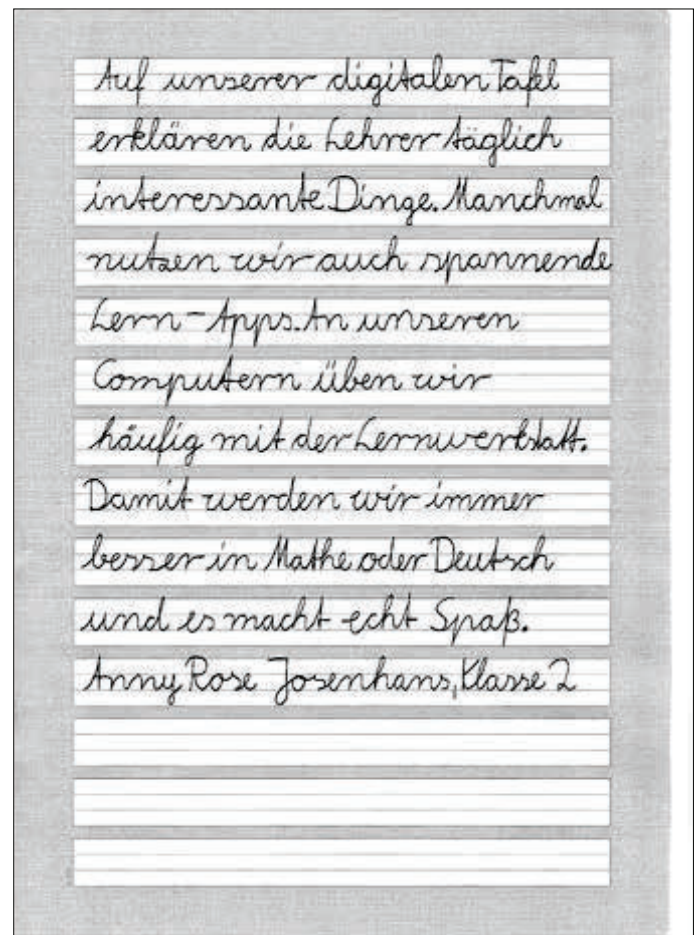 Auf unserer digitalen Tafel
erklären die Lehrer täglich
interessante Dinge. Manchmal
nutzen wir auch spannende
Lern-Apps. An unseren
Computern üben wir
häufig mit der Lernwerkstatt.
Damit werden wir immer
besser in Mathe oder Deutsch
und es macht echt Spaß.
Anny Rose Josenhans, Klasse 2